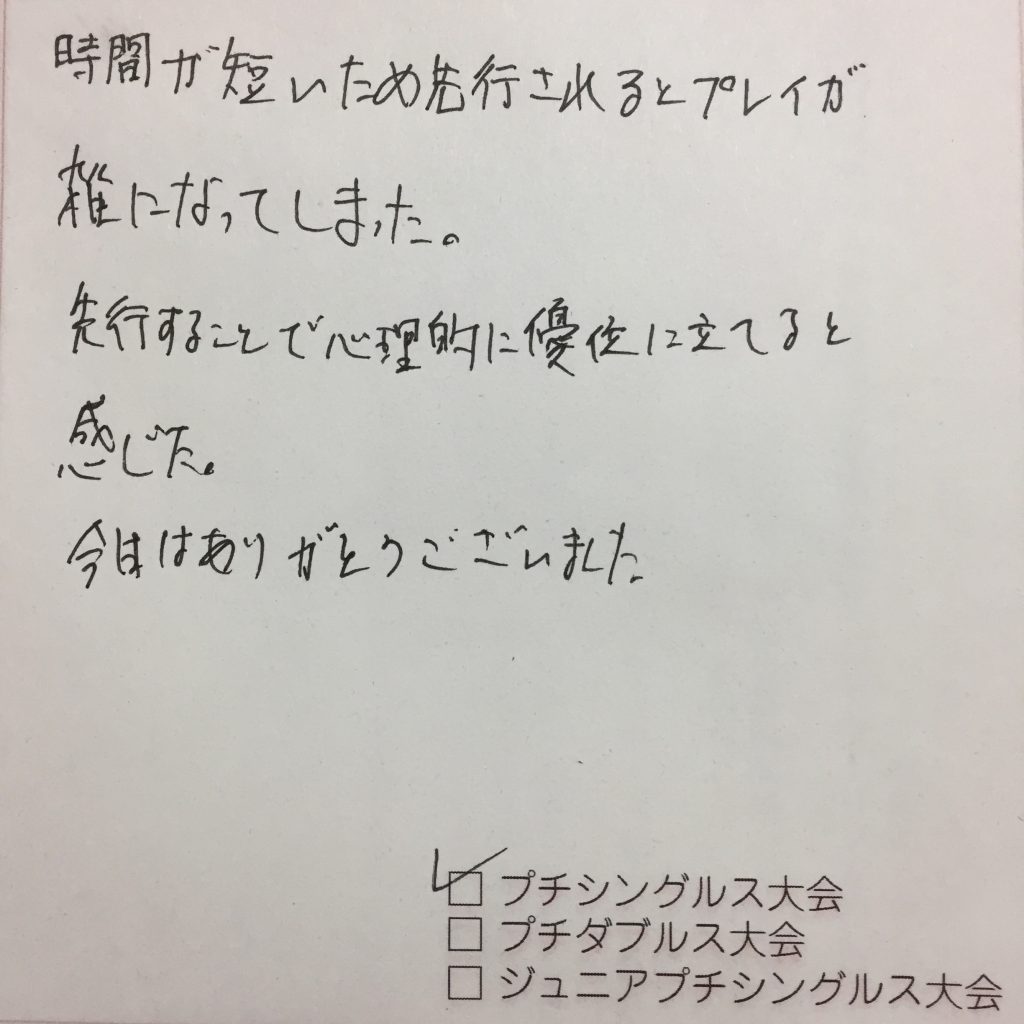 時間が短いため先行されるとプレイが
雑になってしまった。
先行することで心理的に優位に立てると
感じた。
今日はありがとうございました
☑ プチシングルス大会
□ プチダブルス大会
□ ジュニアプチシングルス大会